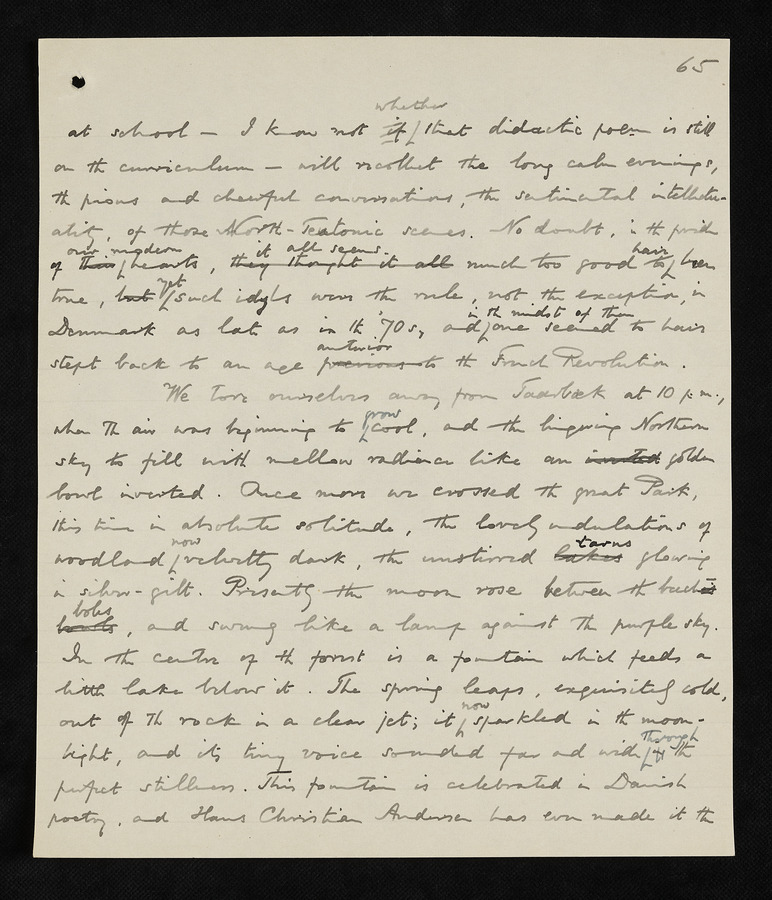 65
whether
at school — I know not if that didactic poem is still
on th curriculum — will recollect the long calm evenings,
th pious and cheerful conversations, the sentimental intellectu-
ality, of those North-Teutonic scenes. No doubt, in th pride
our modern it all seems have
of this hearts, they thought it all much too good to been
yet
true, but such idyls were the rule, not the exception, in
in th midst of them
Denmark as late as in th '70s, and one seemed to have
anterior
stept back to an age previous to th French Revolution.
We tore ourselves away from Taarbæk at 10 p.m.,
grow
when th air was beginning to cool, and the lingering Northern
sky to fill with mellow radiance like an inverted golden
bowl inverted. Once more we crossed th great Park,
this time in absolute solitude, the lovely undulations of
now tarns
woodland velvetty dark, the unstirred lakes glowing
in silver-gilt. Presently the moon rose between th beech
boles
boles, and swung like a lamp against th purple sky.
In th centre of th forest is a fountain which feeds a
little lake below it. The spring leaps, exquisitely cold,
now
out of th rock in a clear jet; it sparkled in th moon-
through
light, and its tiny voice sounded far and wide th
perfect stillness. This fountain is celebrated in Danish
poetry, and Hans Christian Andersen has even made it th